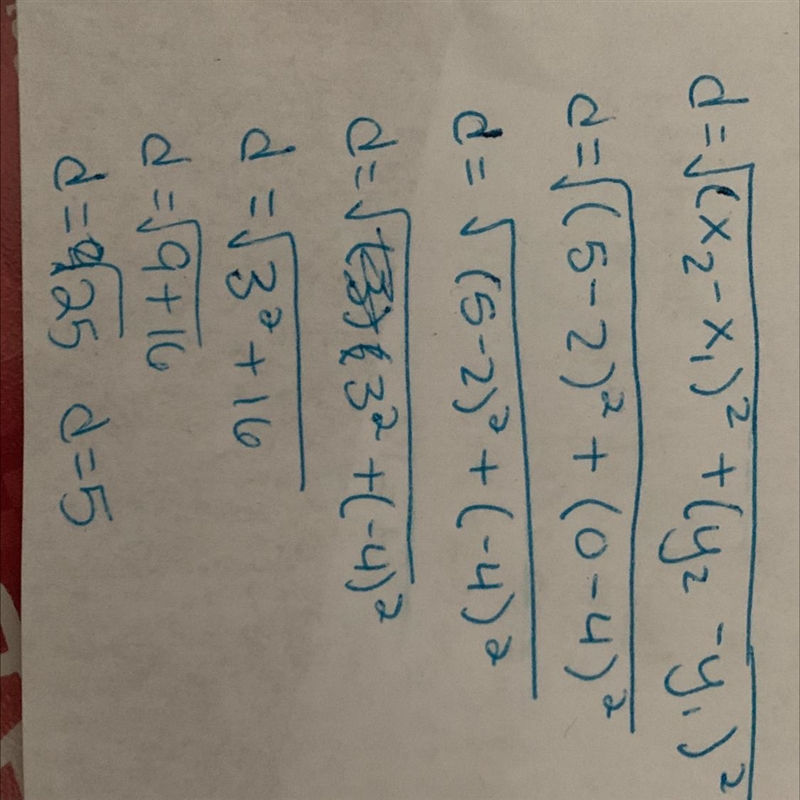 d=√(x₂-x₁)²+(y₂-y₁)²
d=√(5-2)²+(0-4)²
d=√(5-2)²+(-4)²
d=√3²+(-4)²
d=√3²+16
d=√9+16
d=√25 d=5